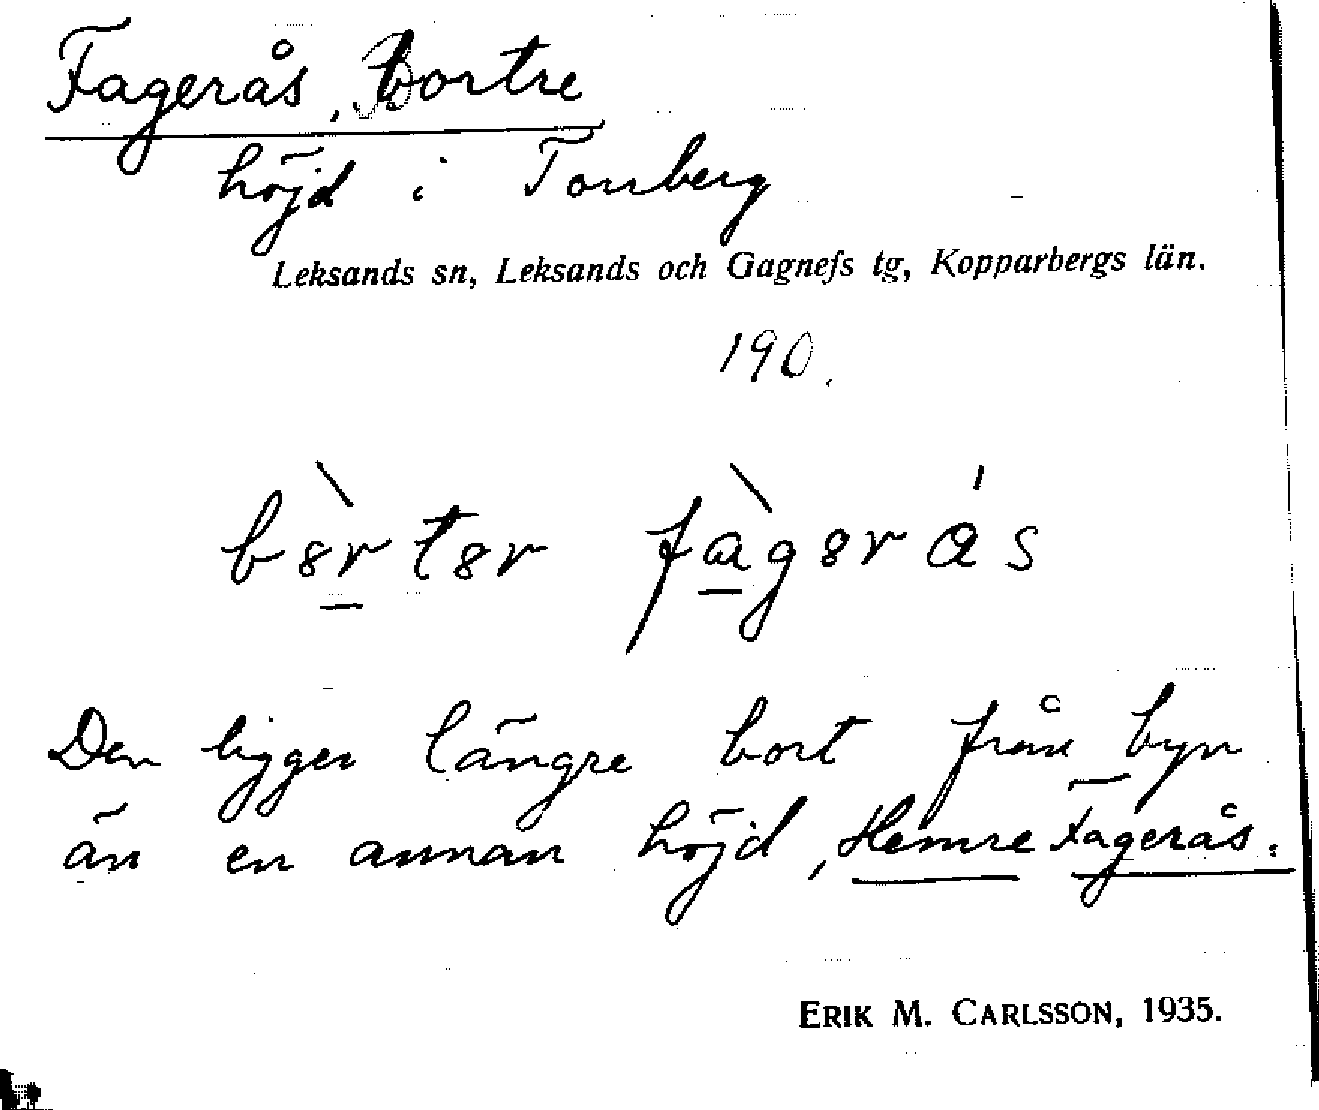 Fagerås, bortre
höjd i Tonberg
Leksands sn, Leksands och Gagnefs tg, Kopparbergs län.
190.
Den ligger längre bort från byn
än en annan höjd, Hemre Fagerås.
ERIK M. CARLSSON, 1935.